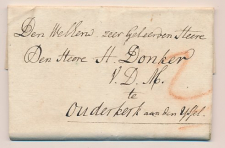 Den WelEerw zeer Geleerden Heere
Den Heere H. Donker
V. D. M.
te
Ouderkerk aan den Yssel.
2